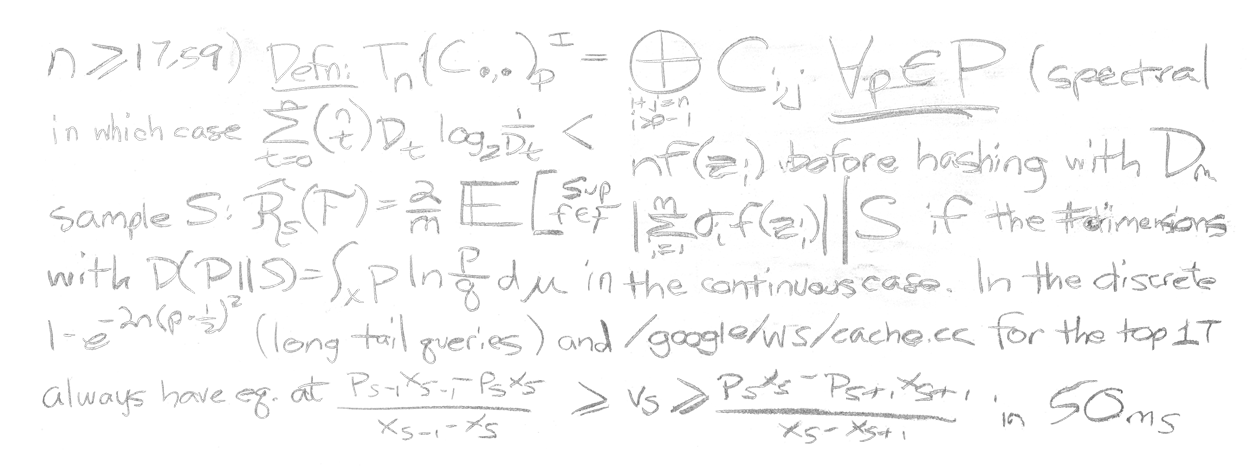 n ≥ 17,59) Defn: Tₙ(C.,.)ₚᴵ = ⊕_{i+j=n, i≥p-1} C_{i,j} ∀p∈P (spectral
in which case ∑_{t=0}^{n} (n t) D_t log₂ 1/D_t < nf(z_i) before hashing with D_m
sample S: R̂_S(F) = 2/m E[sup_{f∈F} |∑_{i=1}^{m} σ_i f(z_i)| | S if the #dimensions
with D(P||S) = ∫_X p ln p/q dμ in the continuous case. In the discrete
1-e^{-2n(p-1/2)²} (long tail queries) and /google/ws/cache.cc for the top 1T
always have eq. at (P_{s-1}x_{s-1} - P_s x_s)/(x_{s-1} - x_s) ≥ v_s ≥ (P_s x_s - P_{s+1} x_{s+1})/(x_s - x_{s+1}) in 50ms